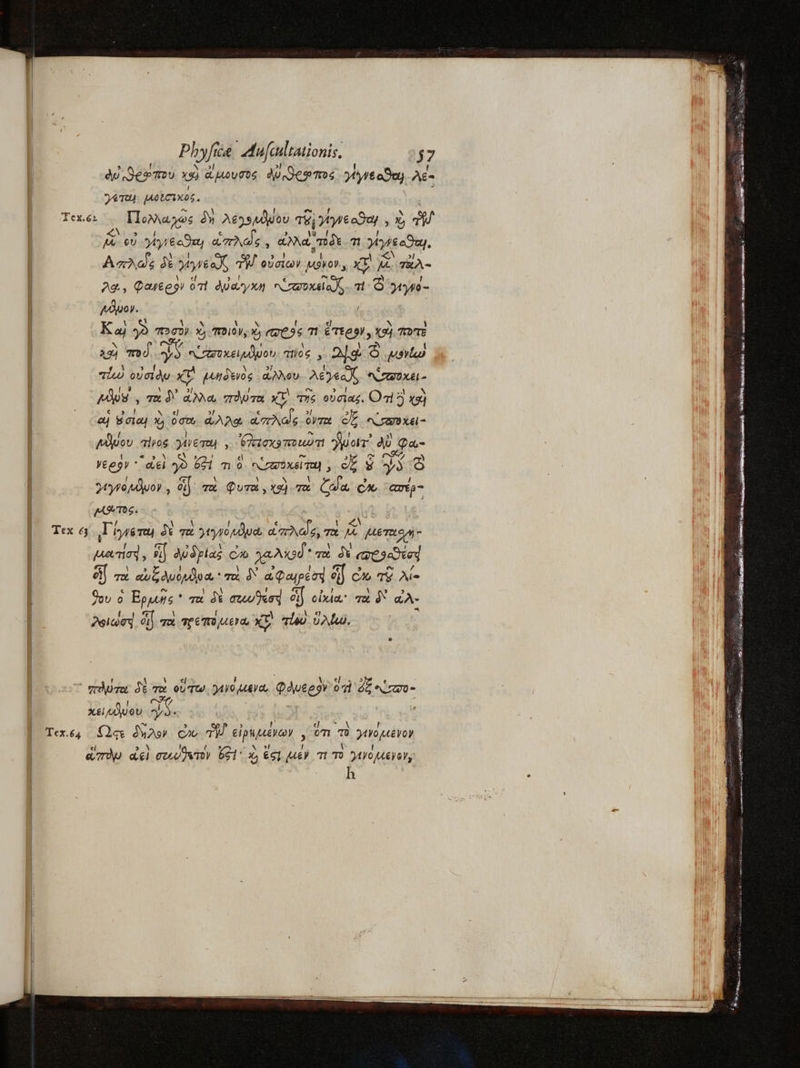 Physicæ Auscultationis. 57
ἄνθρωπου καὶ ἄμουσος ἄνθρωπος γίγνεσθαι λέ-
γεται μουσικός.
Tex.62 Πολλαχῶς δὴ λεγομένου τοῦ γίγνεσθαι, καὶ τῶν
μὲν οὐ γίγνεσθαι ἁπλῶς, ἀλλὰ τόδε τι γίγνεσθαι.
Ἁπλῶς δὲ γίγνεσθαι τῶν οὐσιῶν μόνον, κατὰ μὲν τἆλ-
λα, φανερὸν ὅτι ἀνάγκη ὑποκεῖσθαι τι τὸ γιγνό-
μενον.
Καὶ γὰρ ποσὸν καὶ ποιὸν, καὶ πρός τι ἕτερον, καὶ ποτὲ
καὶ ποῦ γίνεται ὑποκειμένου τινὸς, διὰ τὸ μονὴν
τὴν οὐσίαν κατὰ μηδενὸς ἄλλου λέγεσθαι ὑποκει-
μένου, τὰ δ' ἄλλα πάντα κατὰ τῆς οὐσίας. Ὅτι δὲ καὶ
αἱ οὐσίαι καὶ ὅσα ἄλλα ἁπλῶς ὄντα ἐξ ὑποκει-
μένου τινος γίνεται, ἐπισκοποῦντι γένοιτ' ἂν φα-
νερόν· ἀεὶ γὰρ ἐστι τι ὃ ὑπόκειται, ἐξ οὗ γίνεται τὸ
γιγνόμενον, οἷον τὰ φυτὰ, καὶ τὰ ζῷα ἐκ σπέρ-
ματος.
Tex 63 Γίγνεται δὲ τὰ γιγνόμενα ἁπλῶς, τὰ μὲν μετασχη-
ματίσει, οἷον ἀνδριὰς ἐκ χαλκοῦ· τὰ δὲ προσθέσει
οἷον τὰ αὐξανόμενα· τὰ δ' ἀφαιρέσει οἷον ἐκ τοῦ λί-
θου ὁ Ἑρμῆς· τὰ δὲ συνθέσει οἷον οἰκία· τὰ δ' ἀλ-
λοιώσει οἷον τὰ τρεπόμενα κατὰ τὴν ὕλην.
πάντα δὲ τὰ οὕτω γινόμενα φανερὸν ὅτι ἐξ ὑπο-
κειμένου γίνεται.
Tex.64 Ὥστε δῆλον ἐκ τῶν εἰρημένων, ὅτι τὸ γινόμενον
ἅπαν ἀεὶ συνθετόν ἐστι· καὶ ἔστι μέν τι τὸ γινόμενον,
h